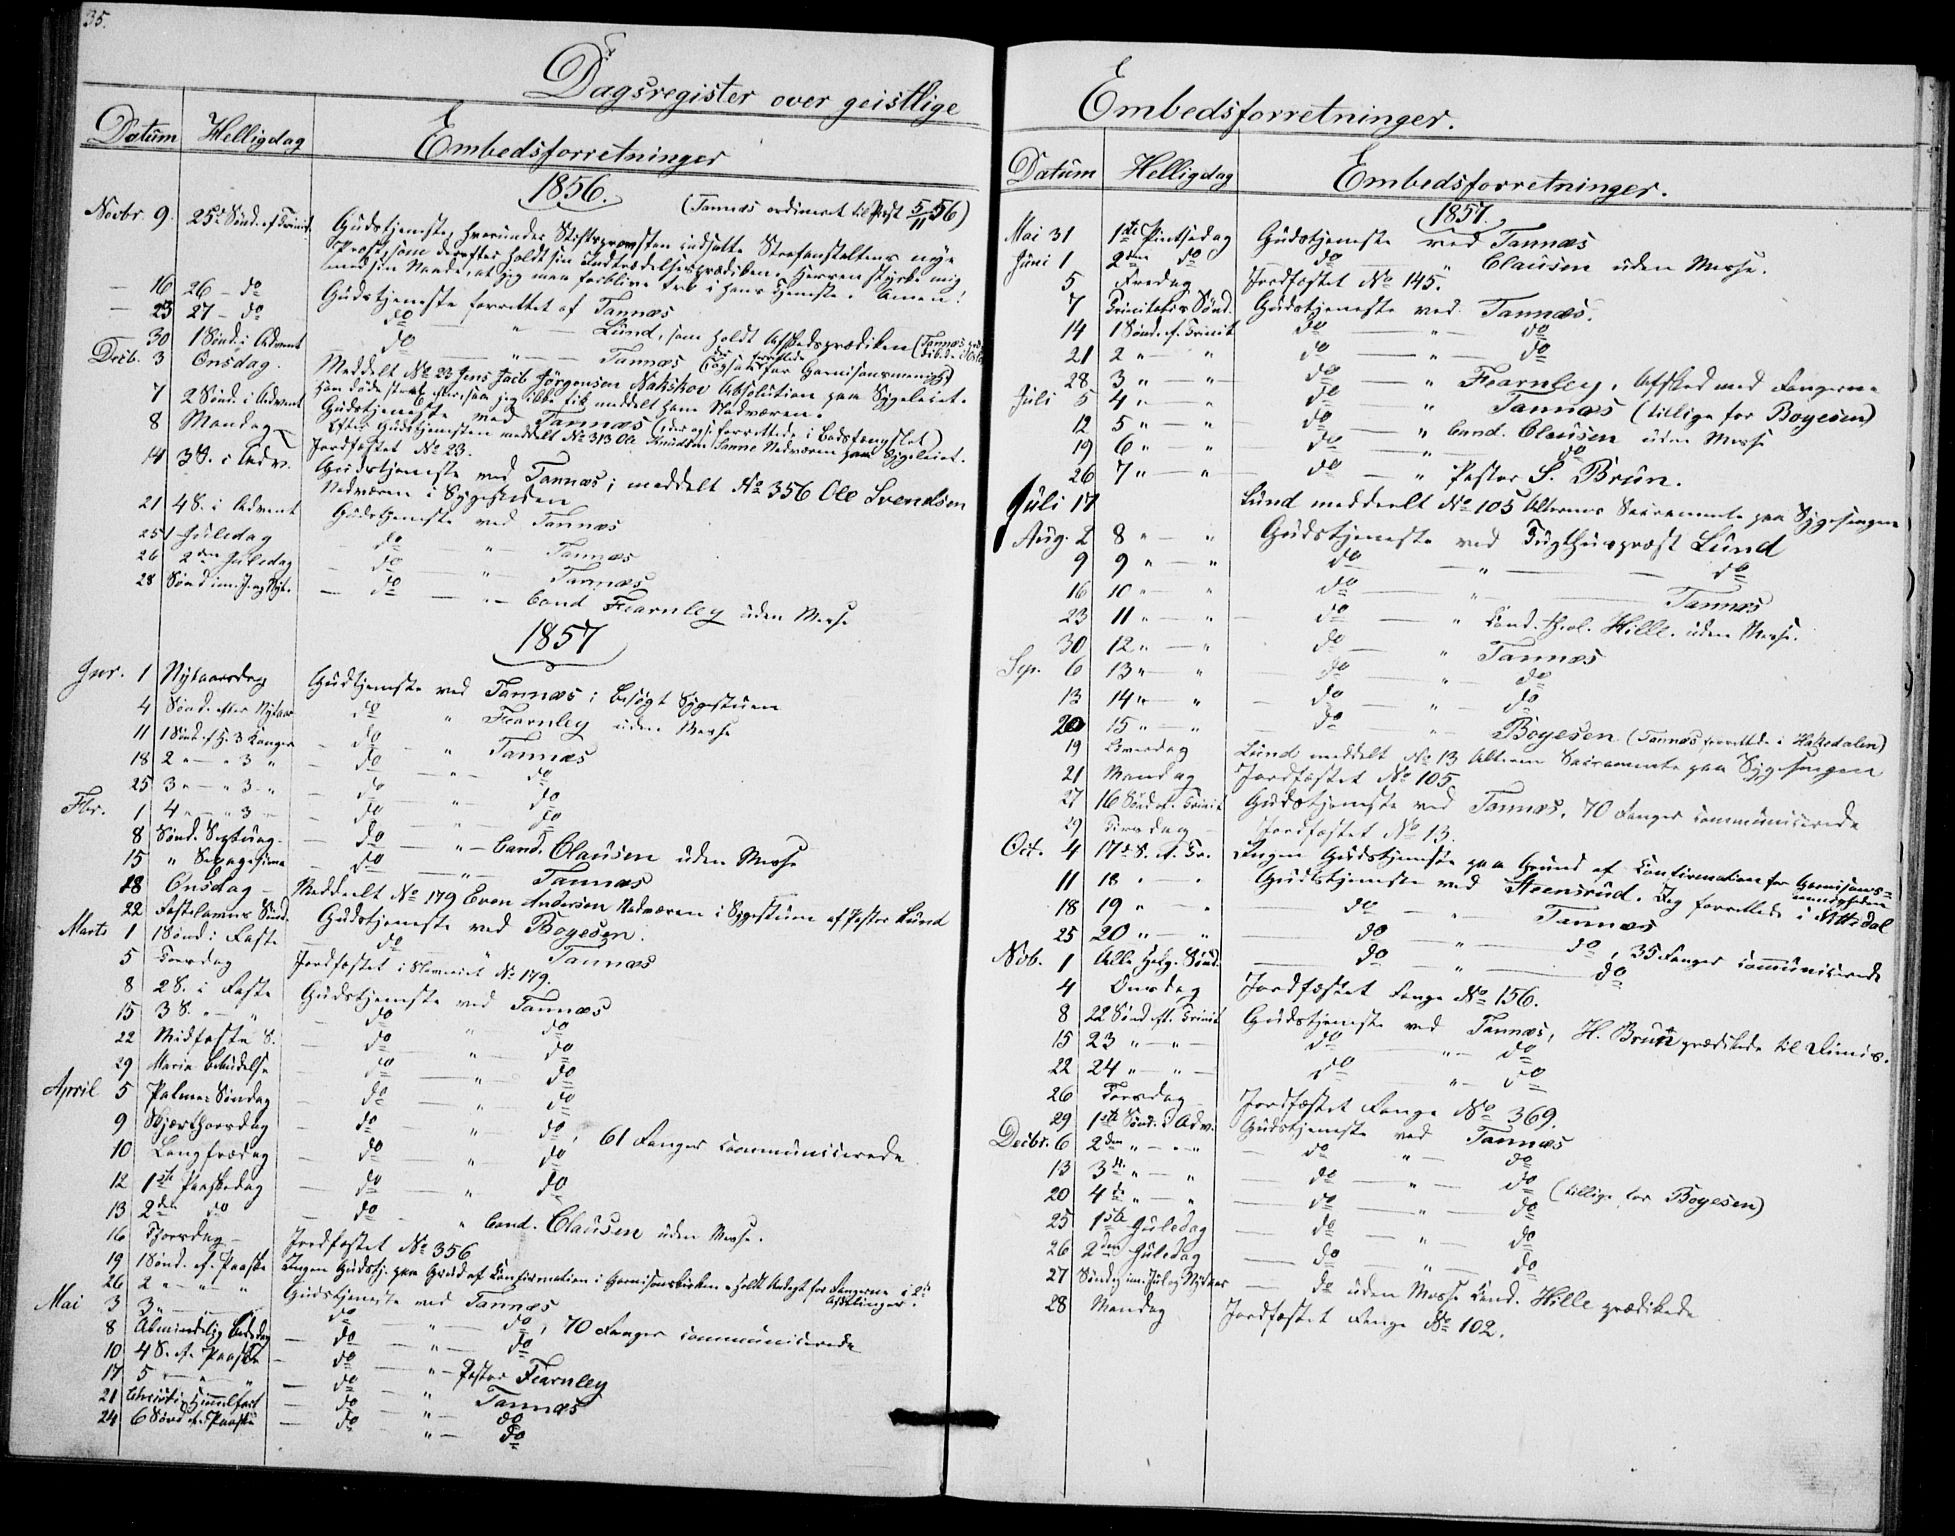 35.
Dagsregister over geistlige
Datum Helligdag Embedsforretninger
1856. (Tannæs ordineret til Præst 5/11 56)
Novbr. 9. 25de Sønd. ef. Trinit. Gudstjeneste, hvorunder Stiftsprovsten indsatte Strafanstaltens nye
Præst, som derefter holdt sin Indtrædelsesprædiken. Herren styrke mig
med sin Naade, at jeg maa forblive tro i hans Tjeneste. Amen!
— 16 26 — do Gudstjeneste forrettet af Tannæs
— 23 27 — do do " Lund, som holdt Afskedsprædiken
30 1 Sønd. i Advent do — " — Tannæs
Decb. 3 Onsdag. Meddelt No 23 Jens Jacob Jørgensen Nakskov Absolution paa Sygeleiet.
Han døde strax efter, saa jeg ikke fik meddelt ham Nadveren.
7 2 Sønd. i Advent Gudstjeneste med Tannæs (der ogs. forrettede i Bodsfængslet)
Efter Gudstjenesten meddelt No 313 Ole Knudsen Sanne Nadveren paa Sygeleiet.
8 Mandag Jordfæstet No 23.
14 3 S. i Adv. Gudstjeneste ved Tannæs; meddelt No 356 Ole Svendsen
Nadveren i Sygestuen
21 4 S. i Advent Gudstjeneste ved Tannæs
25 1 Juledag do — " — Tannæs
26 2den Juledag — do " — Tannæs
28 Sønd. im. J. og Nyt. — do — " — Cand Fearnley uden Messe
1857
Jnr. 1 Nytaarsdag Gudtjeneste ved Tannæs; besøgt Sygestuen
4 Sønd. efter Nytaar do " Fearnley uden Messe
11 1 Sønd. ef. H. 3 Konger — do — " Tannæs
18 2 " — " 3 " — do — " — do
25 3 " — " 3 " — do — " — do
Fbr. 1 4 " — " 3 " — do — " — do
8 Sønd. Septuag. — do — " — Cand. Clausen uden Messe
15 " Sexagesima — do — " — Tannæs
18 Onsdag — Meddeelt No 179 Even Andersen Nadveren i Sygestuen af Pastor Lund
22 Fastelavns Sønd. Gudstjeneste ved Boyesen.
Marts 1 1 Sønd. i Faste do " Tannæs
5 Torsdag Jordfæstet i Slaveriet No 179.
8 2 S. i Faste Gudstjeneste ved Tannæs
15 3 S. " — " — do " do
22 Midfaste S. — do — " — do
29 Maria Bebudelse — do — " — do
April 5 Palme-Søndag — do — " — do
9 Skjærthorsdag — do " do, 61 Fanger communicerede
10 Langfredag — do — " — do
12 1ste Paaskedag — do — " do
13 2den do — do " Cand. Clausen uden Messe.
16 Thorsdag — Jordfæstet No 356
19 1 Sønd. ef. Paaske Ingen Gudstj. paa Grund af Confirmation i Garnisonskirken. Holdt Andagt for Fangerne i 2de
Afdelinger.
26 2 " — " — " Gudstjeneste ved Tannæs
Mai 3 3 " — " do — " — do, 70 Fanger communicerede
8 Almindelig Bededag — do — " — do
10 4 S. ef. Paaske — do — " — Pastor Fearnley
17 5 " — " — " — do — " Tannæs
21 Christi Himmelfart — do — " — do
24 6 Sønd. ef. Paaske — do — " — do
Embedsforretninger.
Datum Helligdag Embedsforretninger.
1857.
Mai 31 1ste Pintsedag Gudstjeneste ved Tannæs
Juni 1 2den do do " Clausen uden Messe.
5 Fredag Jordfæstet No 145.
7 Trinitatis Sønd. Gudstjeneste ved Tannæs.
14 1 Sønd. ef. Trinit. do — " — do
21 2 " — " do — " — do
28 3 " — " do — " Fearnley, Afsked med Fangerne
Juli 5 4 " — " do — " Tannæs (tillige for Boyesen)
12 5 " — " do — " Cand. Clausen uden Messe
19 6 " — " do — " — do
26 7 " — " do — " Pastor S. Brun.
Juli 17 Lund meddeelt No 105 Alterens Sacramente paa Sygesengen
Aug. 2 8 " — " Gudstjeneste ved Tugthuspræst Lund
9 9 " — " do — " — do
16 10 " — " do — " — Tannæs
23 11 " — " do — " Cand. theol. Hille. uden Messe.
30 12 " — " do " Tannæs
Sep. 6 13 " — " do — " — do
13 14 " — " do — " — do
20 15 " — " do " Boyesen (Tannæs forrettede i Hakedalen)
19 Löverdag Lund meddelt No 13 Alterens Sacramente paa Sygesengen
21 Mandag Jordfæstet No 105.
27 16 Sønd. ef. Trinit. Gudstjeneste ved Tannæs, 70 Fanger communicerede
29 Tirsdag — Jordfæstet No 13.
Oct. 4 17de S. ef. Tr. Ingen Gudstjeneste paa Grund af Confirmation for Garnisons=
menigheden
11 18 " " Gudstjeneste ved Steensrud. Jeg forrettede i Nittedal
18 19 " — " do — " Tannæs
25 20 " — " do — " — do, 35 Fanger communicerede
Nob. 1 Alle Helg. Sønd. do — " — do
4 Onsdag Jordfæstet Fange No 156.
8 22 Sønd. ef. Trinit. Gudstjeneste ved Tannæs, H. Brun prædikede til Dimis.
15 23 " — " — do " — do
22 24 " — " — do " — do
26 Torsdag Jordfæstet Fange No 369.
29 1ste Sønd. i Adv. Gudstjeneste ved Tannæs
Decbr. 6 2den " — " — do " — do
13 3die " — " — do — " — do (tillige for Boyesen)
20 4de " — " — do — " — do
25 1ste Juledag — do — " — do
26 2den Juledag — do — " — do
27 Søndag im. Jul og Nytaar — do uden Messe Cand. Hille prædikede
28 Mandag Jordfæstet Fange No 102.